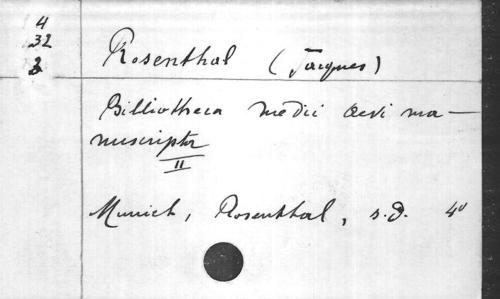 4
32
3
Rosenthal (Jacques)
Bibliotheca medii aevi ma-
nuscripta
II
Munich, Rosenthal, s.d. 4°